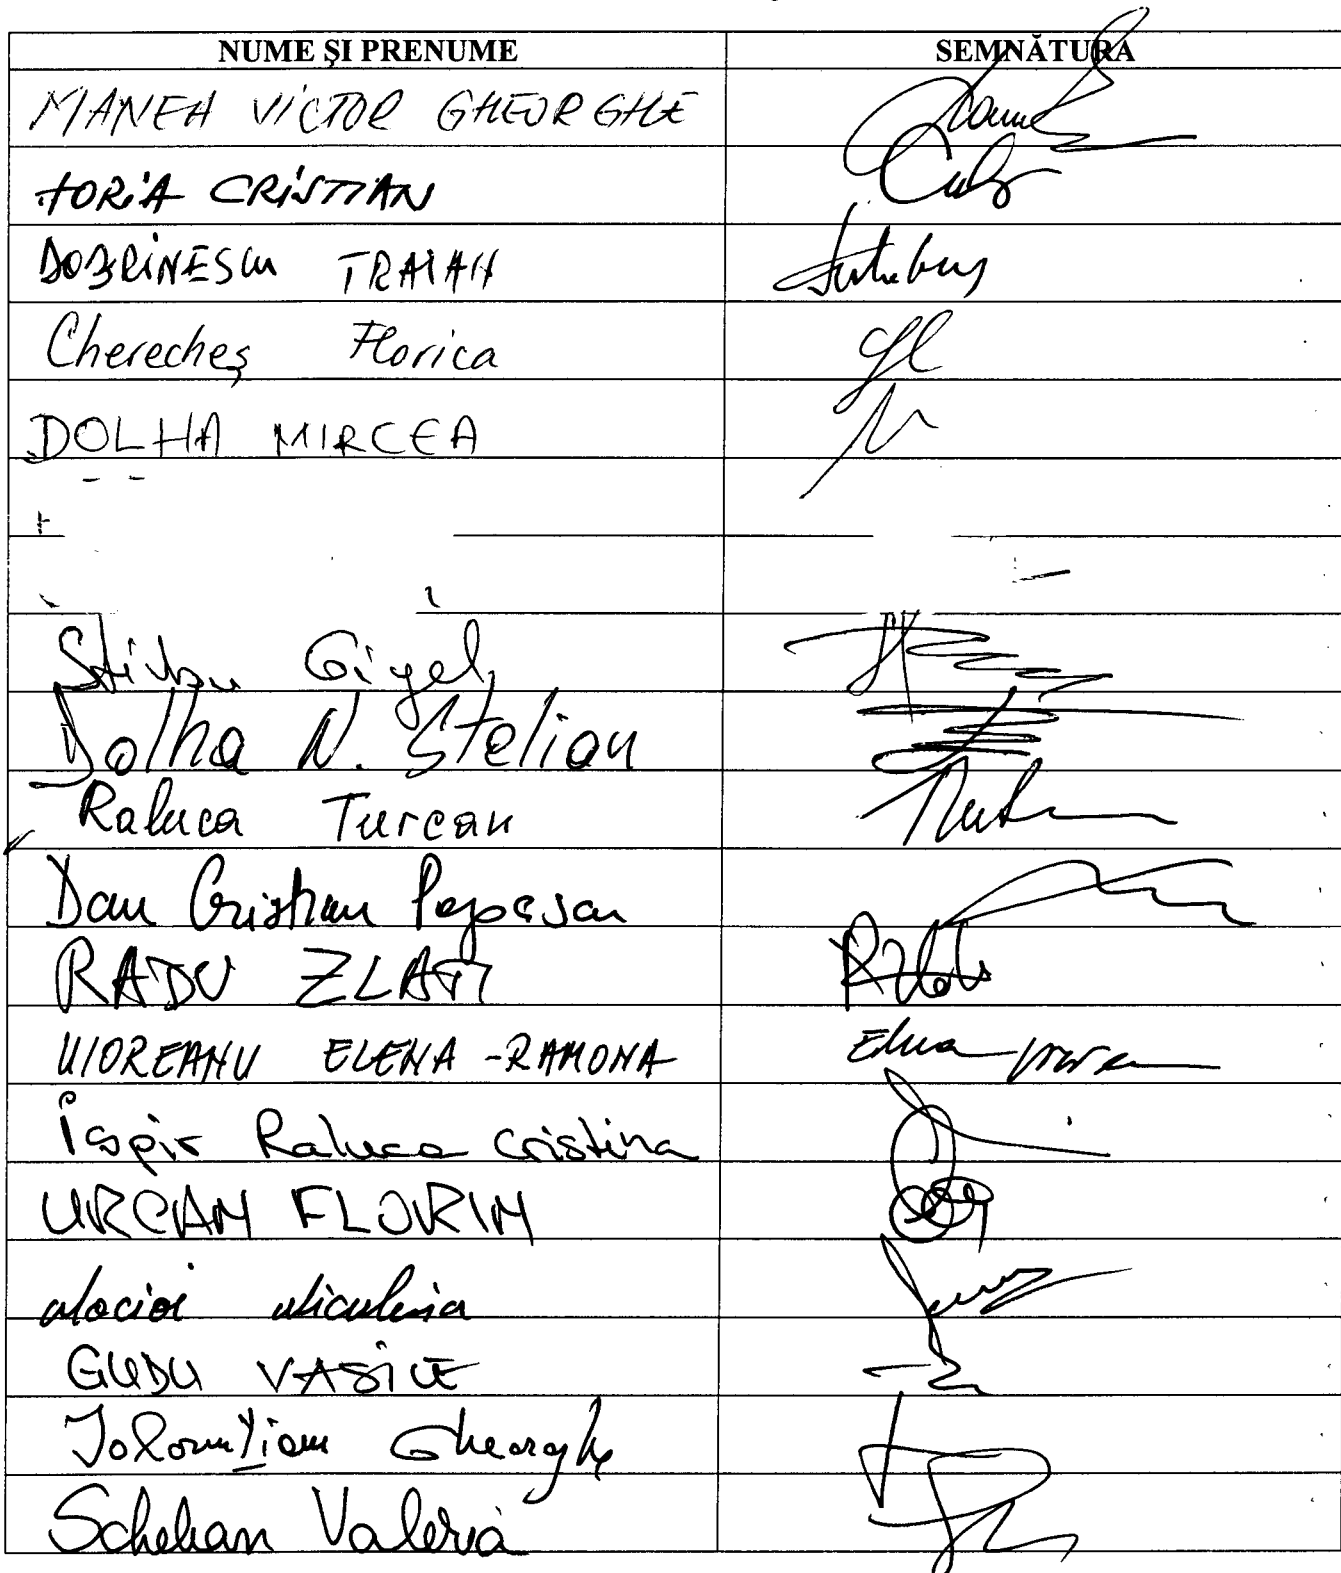 NUME ŞI PRENUME SEMNĂTURA
MANEA VICTOR GHEORGHE
HORIA CRISTIAN
DOBRINESCU TRAIAN
Cherecheş Florica
DOLHA MIRCEA
Ştirbu Gigel
Dolha N. Stelian
Raluca Turcan
Dan Cristian Popescu
RADU ZLATI
UIOREANU ELENA-RAMONA
Ispir Raluca Cristina
URCAN FLORIN
GUDU VASILE
Ialomiţianu Gheorghe
Schelean Valeria